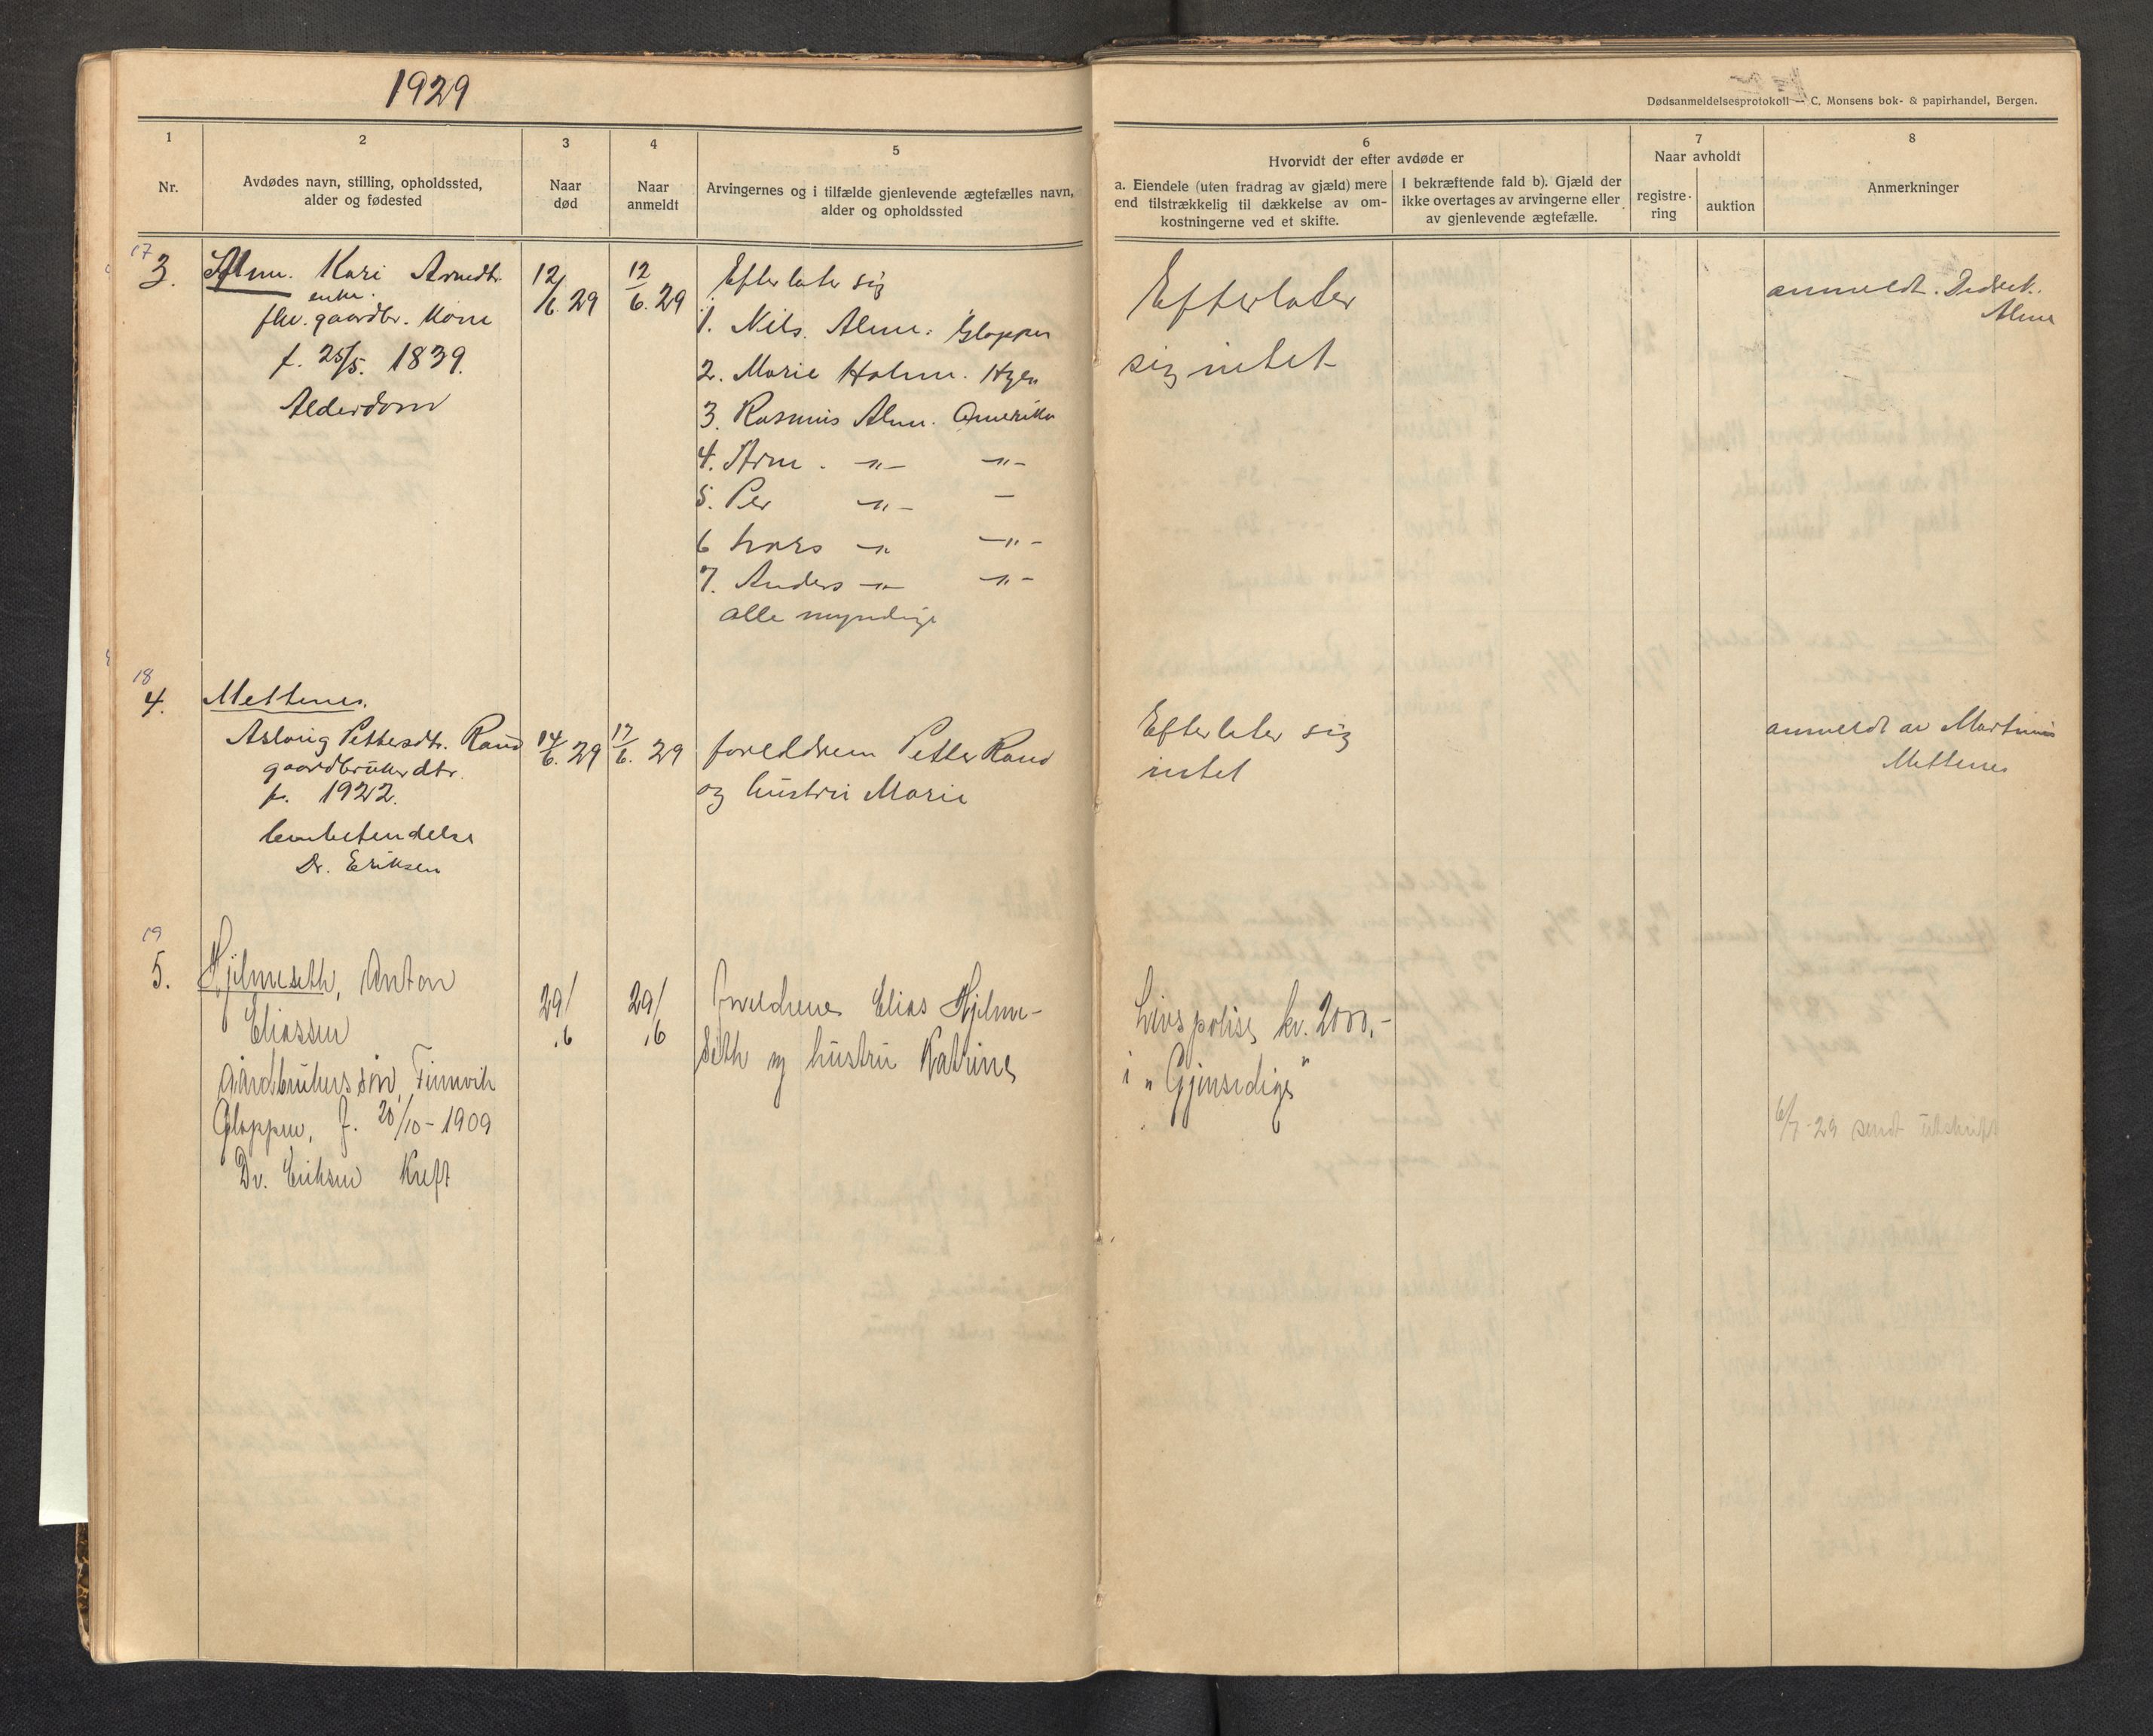 1929
Dødsanmeldelsesprotokoll — C. Monsens bok- & papirhandel, Bergen.
1
Nr.
2
Avdødes navn, stilling, opholdssted,
alder og fødested
3
Naar
død
4
Naar
anmeldt
5
Arvingernes og i tilfælde gjenlevende ægtefælles navn,
alder og opholdssted
6
Hvorvidt der efter avdøde er
a. Eiendele (uten fradrag av gjæld) mere
end tilstrækkelig til dækkelse av om-
kostningerne ved et skifte.
I bekræftende fald b). Gjæld der
ikke overtages av arvingerne eller
av gjenlevende ægtefælle.
7
Naar avholdt
registre-
ring
auktion
8
Anmerkninger
17
3.
Alme. Kari Arnedtr.
enke.
fhv. gaardbr. kone
f. 25/5. 1839.
Alderdom
12/6. 29
12/6. 29
Efterlater sig
1. Nils. Alme. Gloppen
2. Marie Holme. Hyen
3. Rasmus Alme. Amerika
4. Arne. -"- -"-
5. Per -"- -
6 Lars -"- -"-
7. Anders -"- -"-
alle myndige
Efterlater
sig intet
anmeldt. Didrik.
Alme
18
4.
Mettenes.
Aslaug Pettersdtr. Rand
gaardbruker dtr.
f. 1922.
Dr. Eriksen
14/6. 29
17/6. 29
foreldrene Petter Rand
og hustru Marie
Efterlater sig
intet
anmeldt av Martinus
Mettenes
19
5.
Hjelmeseth, Anton
Eliassen
gårdbrukerssøn, Finnvik
Gloppen, f. 20/10-1909
Dr. Eriksen Kreft
29/6
29/6
Foreldrene Elias Hjelme-
seth og hustru Katrine
Livspolise kr. 2000,-
i "Gjensidige"
6/7-29 sendt utskrift